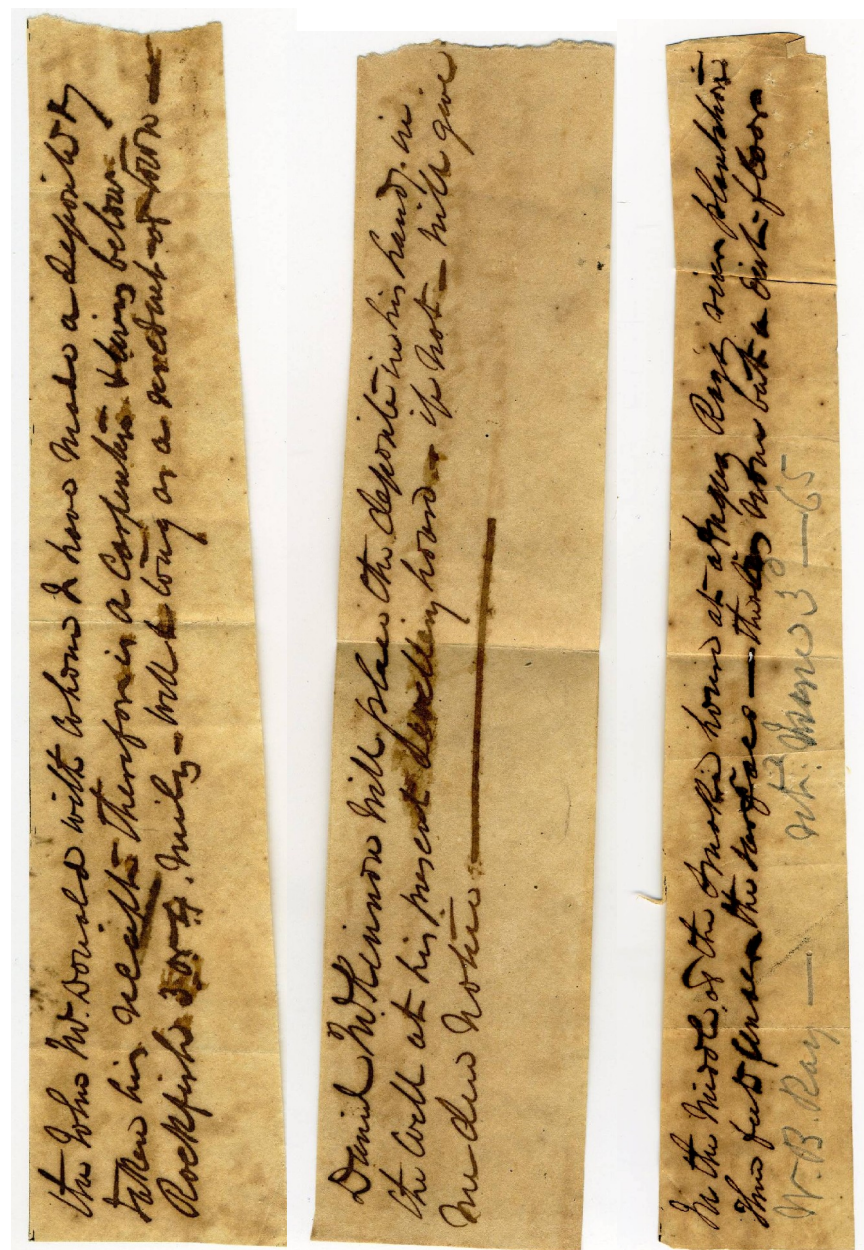 the John McDonald with whom I have made a deposite &
taken his receipt therefor is a Carpenter living below
Rockfish 3 or 4 miles - will be long as a resident of town -
Daniel McKinnon will place the deposite in his hands in
the well at his present dwelling house - if not - will give
me due notice
In the Middle of the Smoke house at Angus Rays river plantation
three feet under the surface - the house but a dirt floor
W. B. Ray - March 3d - 65